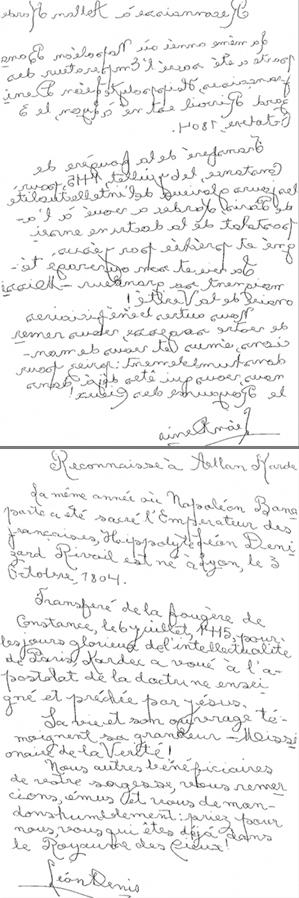 Reconnaissa à Allan Karde
La même année où Napoléon Bona
parte a été sacré l'Empereur des
françaises, Hippolyte Léon Deni
zard Rivail est né à Lyon, le 3
Octobre, 1804.
Transferé de la fougère de
Constance, le 6 juillet, 1415, pour
les jours glorieux de l'intellectualité
de Paris, Kardec a voué à l'a-
postolat de la doctrine ensei
gné et prêchée par Jésus.
La vie et son ouvrage té-
moignent sa grandeur - Missi
onaire de la Verité!
Nous autres bénéficiaires
de votre sagesse, vous remer
cions, émus et vous deman-
dons humblement: priez pour
nous, vous qui êtes déjà dans
le Royaume des Cieux!
Léon Denis
Reconnaissa à Allan Karde
La même année où Napoléon Bona
parte a été sacré l'Empereur des
françaises, Hippolyte Léon Deni
zard Rivail est né à Lyon, le 3
Octobre, 1804.
Transferé de la fougère de
Constance, le 6 juillet, 1415, pour
les jours glorieux de l'intellectualité
de Paris, Kardec a voué à l'a-
postolat de la doctrine ensei
gné et prêchée par Jésus.
La vie et son ouvrage té-
moignent sa grandeur - Missi
onaire de la Verité!
Nous autres bénéficiaires
de votre sagesse, vous remer
cions, émus et vous deman-
dons humblement: priez pour
nous, vous qui êtes déjà dans
le Royaume des Cieux!
Léon Denis